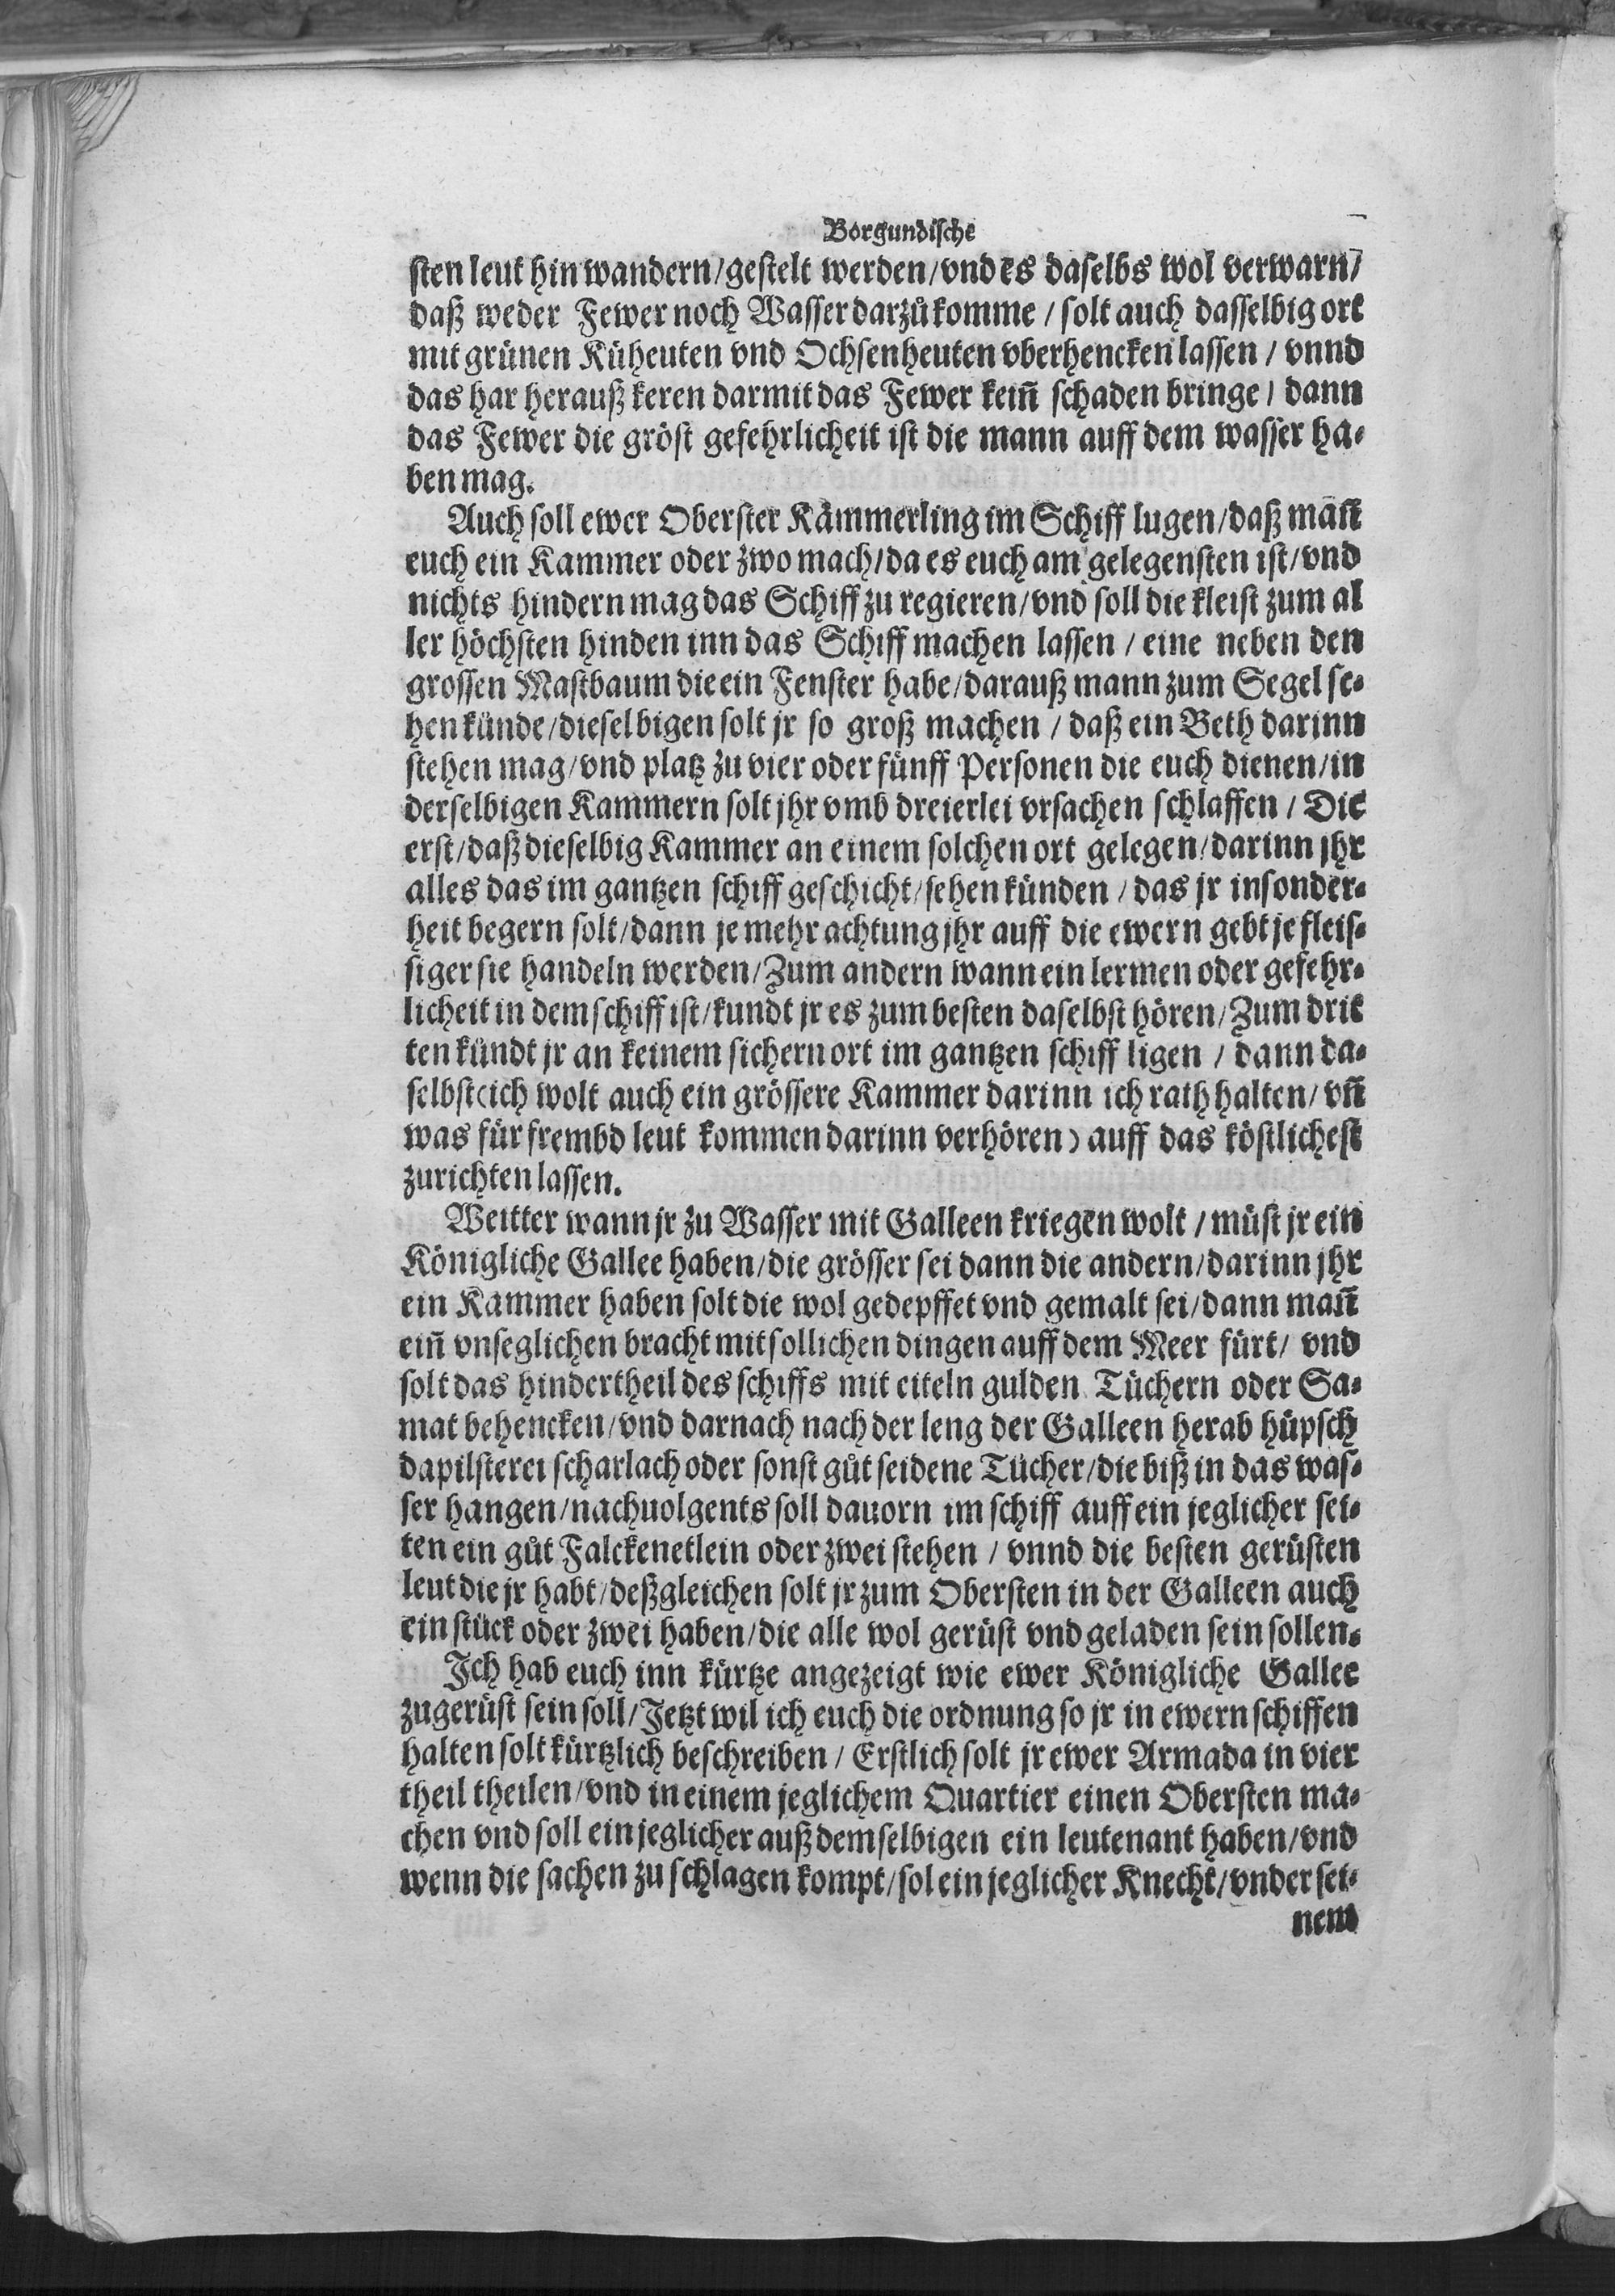 Borgundische
sten leut hin wandern/gestelt werden/vnd es daselbs wol verwarn/
daß weder Fewer noch Wasser darzů komme / solt auch dasselbig ort
mit grünen Küheuten vnd Ochsenheuten vberhencken lassen / vnnd
das har herauß keren darmit das Fewer kein̄ schaden bringe / dann
das Fewer die gröst gefehrlicheit ist die mann auff dem wasser ha⸗
ben mag.
Auch soll ewer Oberster Kämmerling im Schiff lugen/daß man̄
euch ein Kammer oder zwo mach/da es euch am gelegensten ist/vnd
nichts hindern mag das Schiff zu regieren/vnd soll die kleist zum al
ler höchsten hinden inn das Schiff machen lassen / eine neben den
grossen Mastbaum die ein Fenster habe/darauß mann zum Segel se⸗
hen künde/dieselbigen solt jr so groß machen / daß ein Beth darinn
stehen mag/vnd platz zu vier oder fünff Personen die euch dienen/in
derselbigen Kammern solt jhr vmb dreierlei vrsachen schlaffen / Die
erst/daß dieselbig Kammer an einem solchen ort gelegen/darinn jhr
alles das im gantzen schiff geschicht/sehen künden / das jr insonder⸗
heit begern solt/dann je mehr achtung jhr auff die ewern gebt je fleis⸗
siger sie handeln werden/Zum andern wann ein lermen oder gefehr⸗
licheit in dem schiff ist/kundt jr es zum besten daselbst hören/Zum drit
ten kündt jr an keinem sichern ort im gantzen schiff ligen / dann da⸗
selbst(ich wolt auch ein grössere Kammer darinn ich rath halten/ vn̄
was für frembd leut kommen darinn verhören) auff das köstlichest
zurichten lassen.
Weitter wann jr zu Wasser mit Galleen kriegen wolt / müst jr ein
Königliche Gallee haben/die grösser sei dann die andern/darinn jhr
ein Kammer haben solt die wol gedepffet vnd gemalt sei/dann man̄
ein̄ vnseglichen bracht mit sollichen dingen auff dem Meer fürt/ vnd
solt das hindertheil des schiffs mit eiteln gulden Tüchern oder Sa⸗
mat behencken/vnd darnach nach der leng der Galleen herab hüpsch
dapilsterei scharlach oder sonst gůt seidene Tücher/die biß in das was⸗
ser hangen/nachuolgents soll dauorn im schiff auff ein jeglicher sei⸗
ten ein gůt Falckenetlein oder zwei stehen / vnnd die besten gerüsten
leut die jr habt/deßgleichen solt jr zum Obersten in der Galleen auch
ein stück oder zwei haben/die alle wol gerüst vnd geladen sein sollen.
Ich hab euch inn kürtze angezeigt wie ewer Königliche Gallee
zugerüst sein soll/Jetzt wil ich euch die ordnung so jr in ewern schiffen
halten solt kürtzlich beschreiben / Erstlich solt jr ewer Armada in vier
theil theilen/vnd in einem jeglichem Quartier einen Obersten ma⸗
chen vnd soll ein jeglicher auß demselbigen ein leutenant haben/vnd
wenn die sachen zu schlagen kompt/sol ein jeglicher Knecht/vnder sei⸗
nem